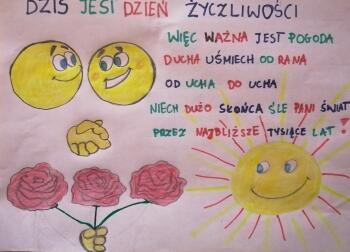 DZIŚ JEST DZIEŃ ŻYCZLIWOŚCI
WIĘC WAŻNA JEST POGODA
DUCHA UŚMIECH OD RANA
OD UCHA DO UCHA
NIECH DUŻO SŁOŃCA ŚLE PANI ŚWIAT
PRZEZ NAJBLIŻSZE TYSIĄCE LAT!